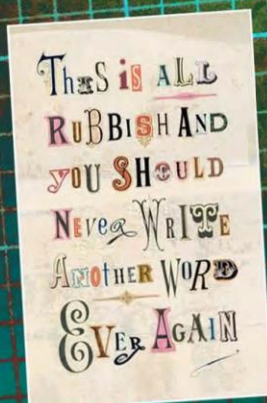 ThiS is ALL
RuBBiSH AND
yOU SHOULD
NeveR WRITE
AnoTHER WORD
EVER AGAiN